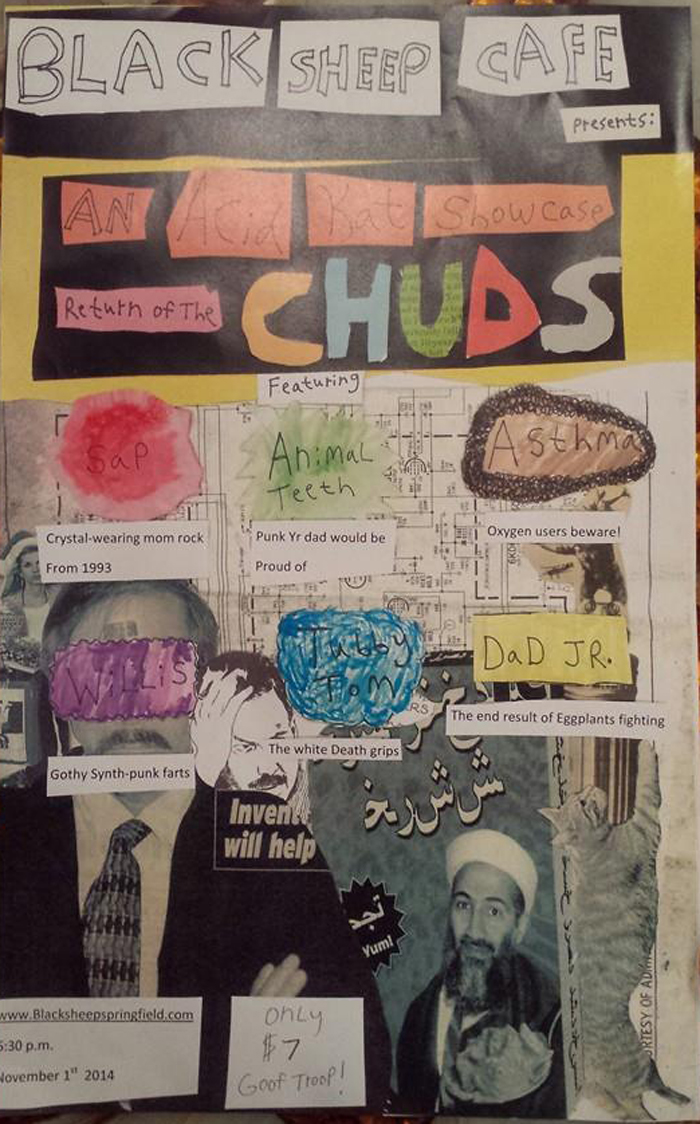 BLACK SHEEP CAFE
presents:
AN Acid Kat Showcase
Return of The CHUDS
Featuring
Sap
Animal
Teeth
Asthma
Crystal-wearing mom rock
From 1993
Punk Yr dad would be
Proud of
Oxygen users beware!
WiLLiS
Tubby
Tom
DaD JR.
Gothy Synth-punk farts
The white Death grips
The end result of Eggplants fighting
Invent
will help
Yum!
www.Blacksheepspringfield.com
:30 p.m.
November 1st 2014
ONLY
$7
Goof Troop!
RTESY OF